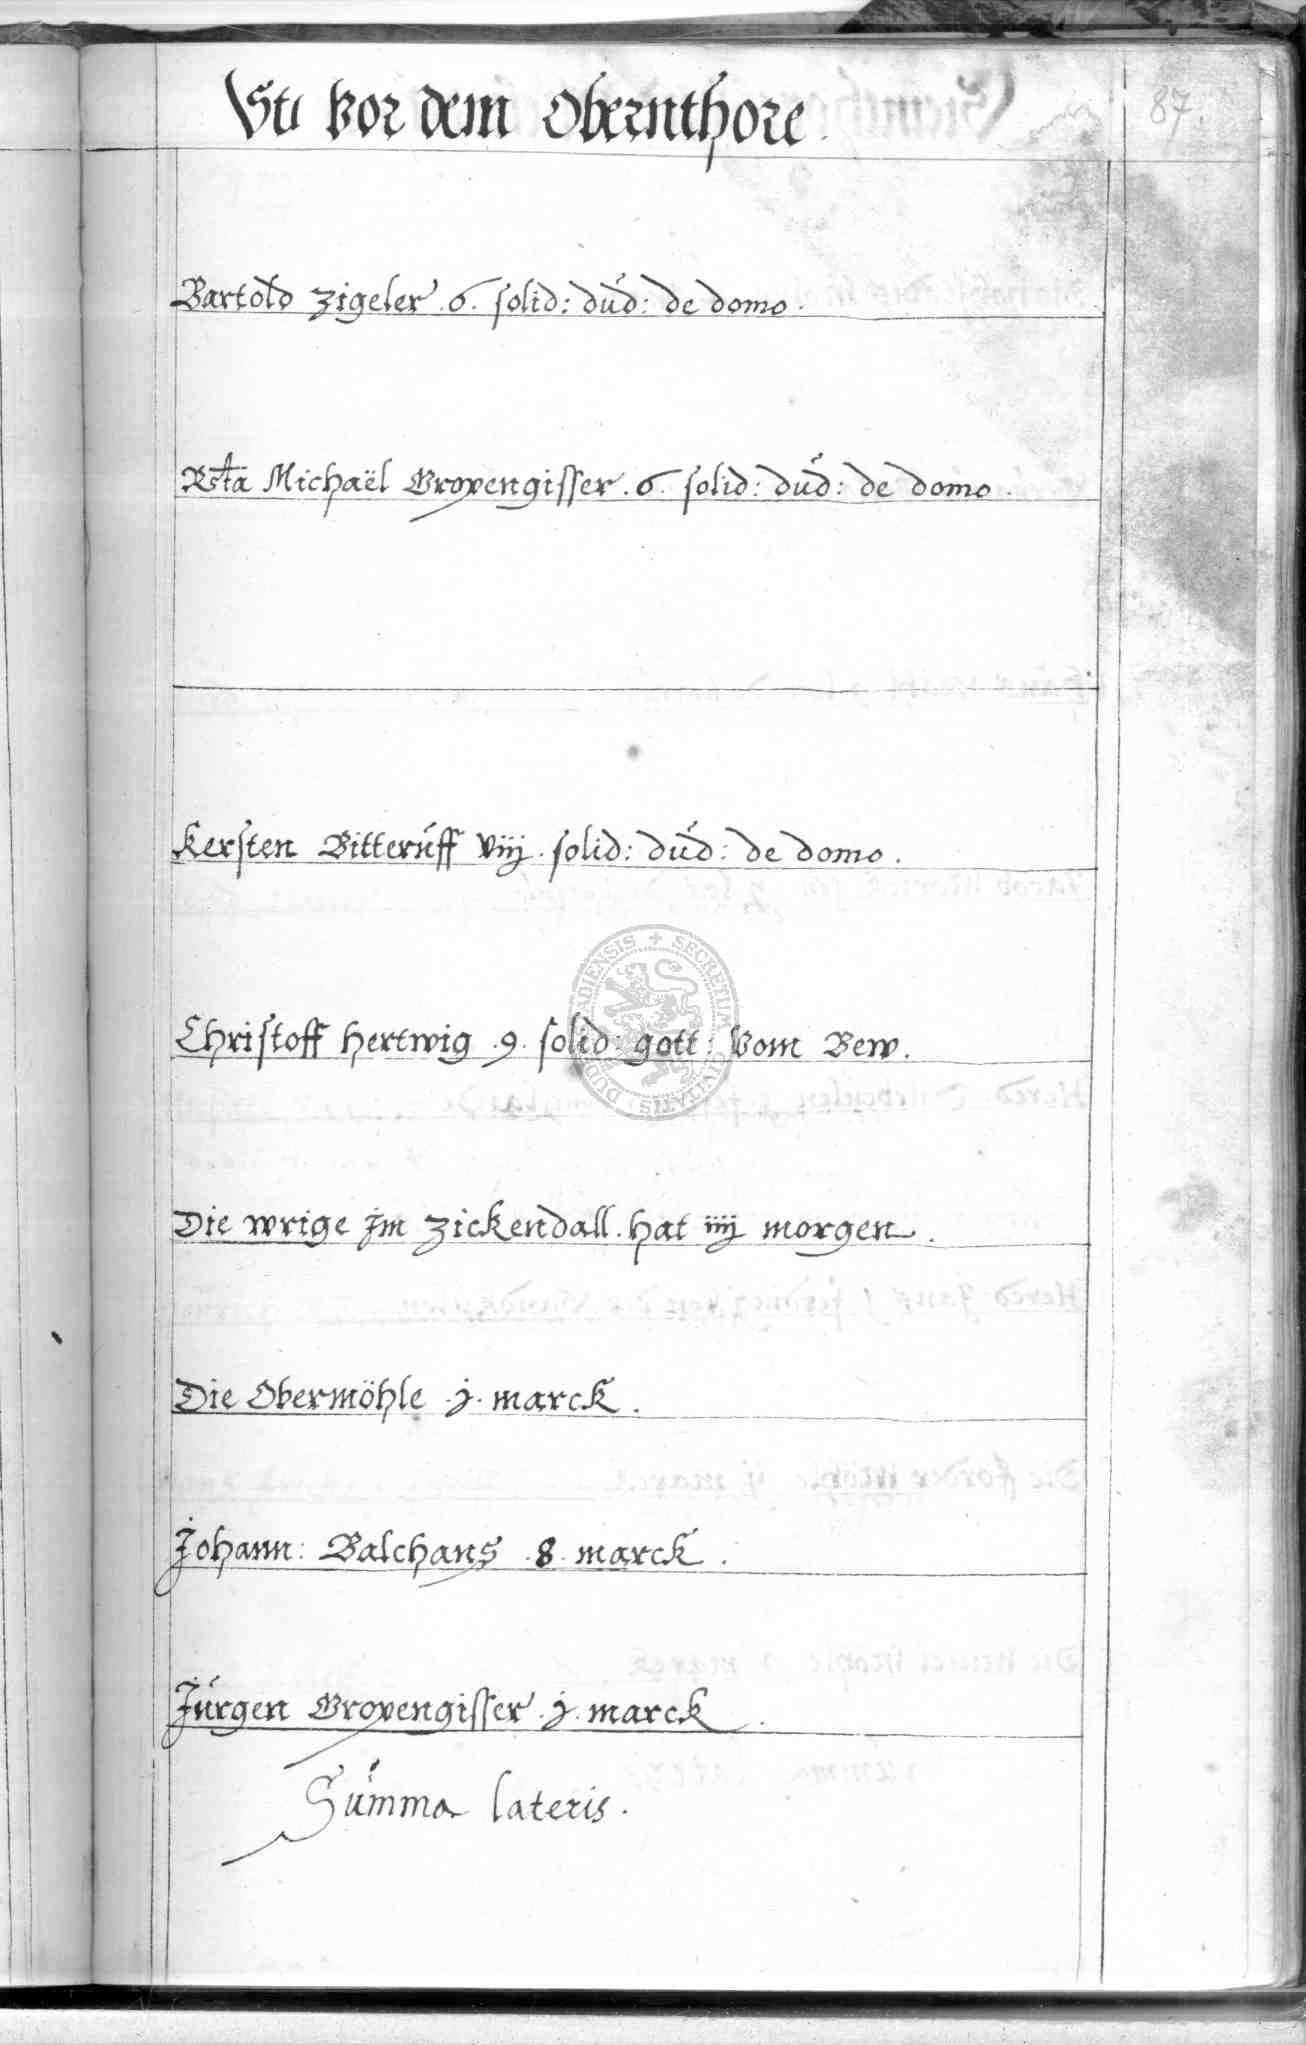 Vor dem Obernthore.
87.
Bartold Zigeler. 6. solid: dud: de domo.
Rcta Michaël Gropengisser. 6. solid: dud: de domo.
Kersten Bitteruff viij. solid: dud: de domo.
Christoff Hertwig .9. solid: gott: Vom Bew.
Die wrige Jm Zickendall. hat iiij morgen.
Die Obermöhle .j. marck.
Johann: Balchans .8. marck.
Jurgen Gropengisser. j. marck.
Summa lateris.
SECRETUM CIVITATIS DUDERSTADIENSIS